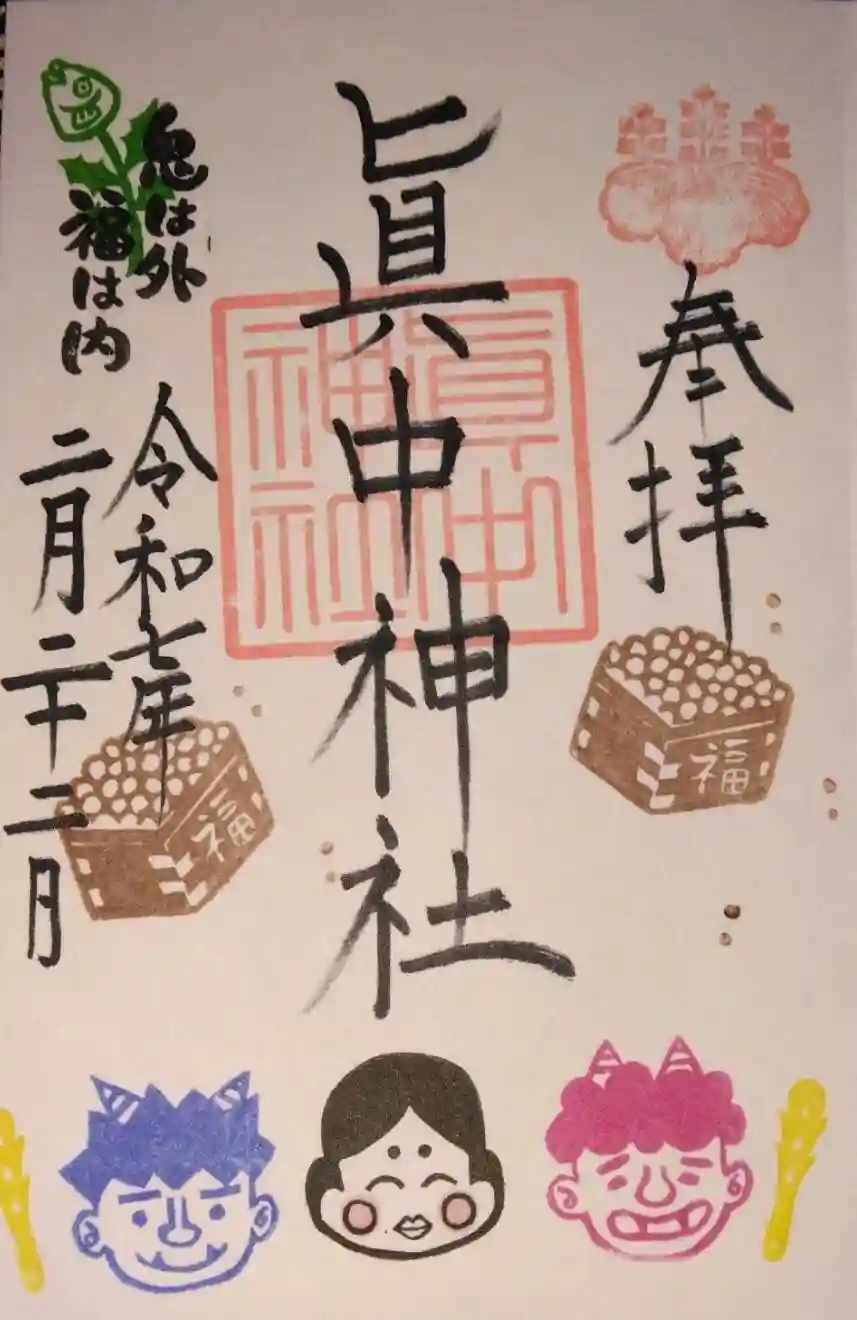 奉拝
眞中神社
眞中神社
鬼は外
福は内
令和七年
二月二十二日
福
福